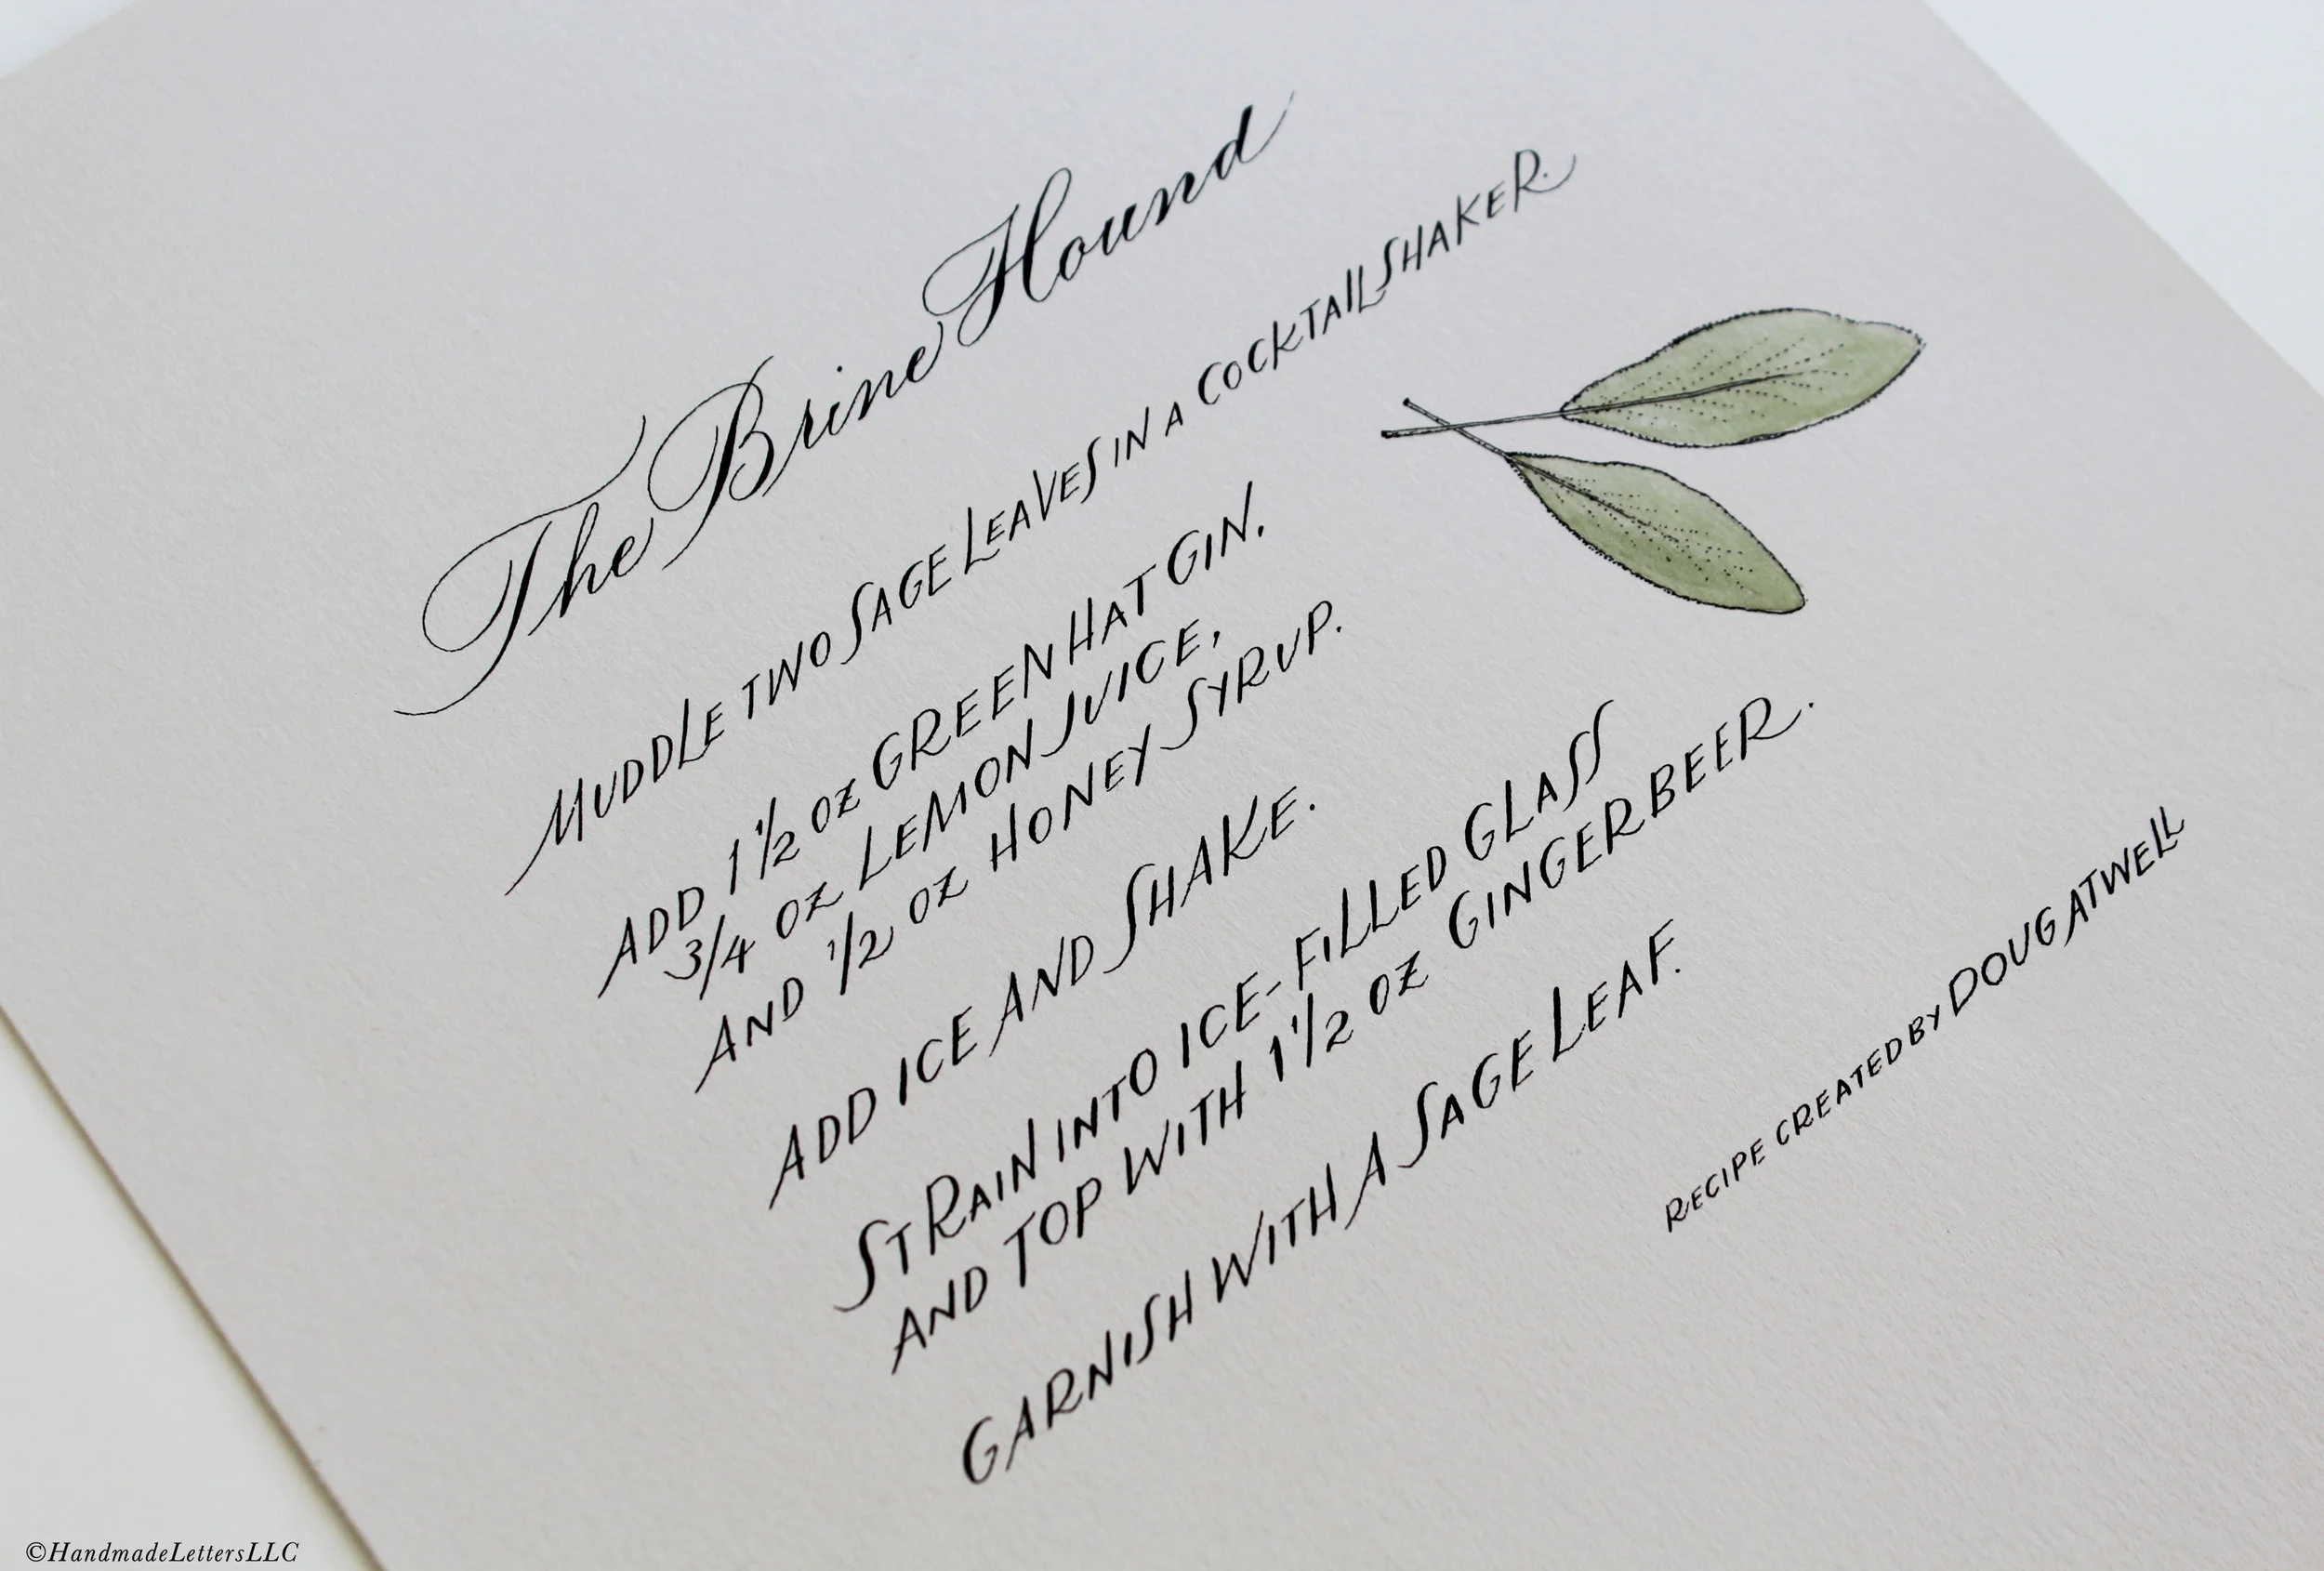 The Brine Hound
MUDDLE TWO SAGE LEAVES IN A COCKTAIL SHAKER.
ADD 1 1/2 OZ GREEN HAT GIN.
3/4 OZ LEMON JUICE,
AND 1/2 OZ HONEY SYRUP.
ADD ICE AND SHAKE.
STRAIN INTO ICE-FILLED GLASS
AND TOP WITH 1 1/2 OZ GINGER BEER.
GARNISH WITH A SAGE LEAF.
RECIPE CREATED BY DOUG ATWELL
©HandmadeLettersLLC